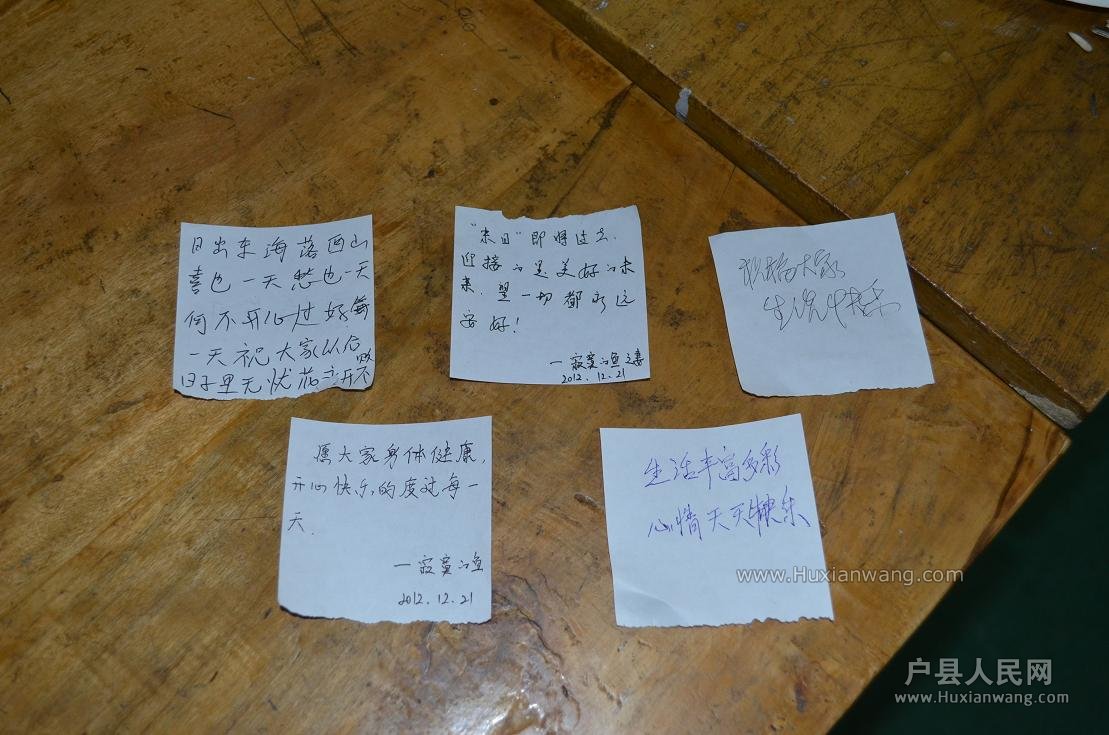 日出东海落西山
喜也一天愁也一天
何不开心过好每
一天祝大家以后
日子里无忧
"末日"即将过去,
迎接的是美好的未
来.望一切都永远
安好!
—寂寞的鱼之妻
2012.12.21
祝福大家
生活快乐
愿大家身体健康,
开心快乐的度过每一
天.
—寂寞的鱼
2012.12.21
生活丰富多彩
心情天天快乐
www.Huxianwang.com
户县人民网
www.Huxianwang.com